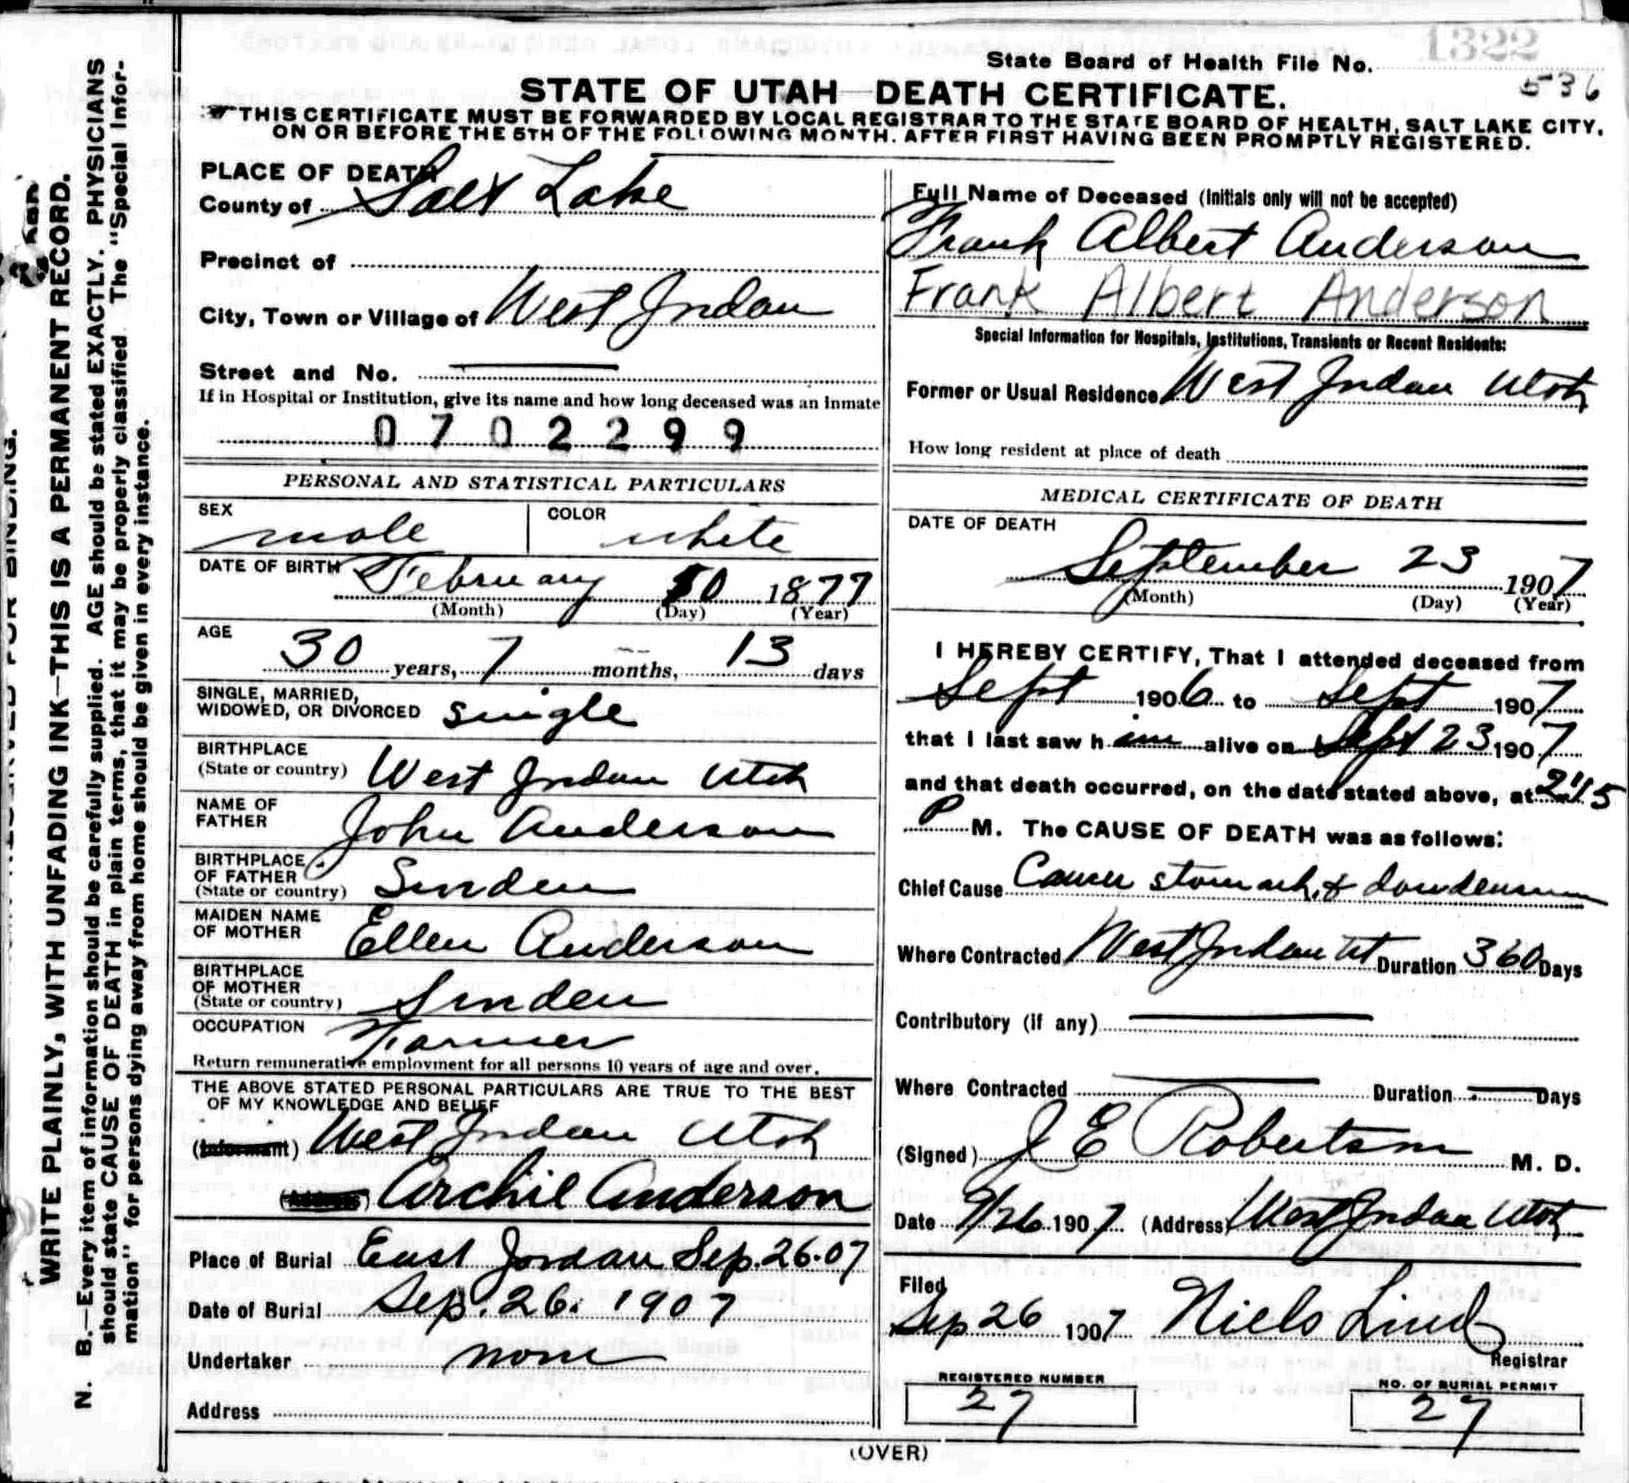 1322
State Board of Health File No.
536
STATE OF UTAH—DEATH CERTIFICATE.
THIS CERTIFICATE MUST BE FORWARDED BY LOCAL REGISTRAR TO THE STATE BOARD OF HEALTH, SALT LAKE CITY,
ON OR BEFORE THE 5TH OF THE FOLLOWING MONTH. AFTER FIRST HAVING BEEN PROMPTLY REGISTERED.
WRITE PLAINLY, WITH UNFADING INK—THIS IS A PERMANENT RECORD.
N. B.—Every item of information should be carefully supplied. AGE should be stated EXACTLY. PHYSICIANS
should state CAUSE OF DEATH in plain terms, that it may be properly classified. The "Special Infor-
mation" for persons dying away from home should be given in every instance.
PLACE OF DEATH
County of Salt Lake
Precinct of
City, Town or Village of West Jordan
Street and No.
If in Hospital or Institution, give its name and how long deceased was an inmate
0702299
PERSONAL AND STATISTICAL PARTICULARS
SEX male COLOR white
DATE OF BIRTH February 10 1877
(Month) (Day) (Year)
AGE 30 years, 7 months, 13 days
SINGLE, MARRIED,
WIDOWED, OR DIVORCED single
BIRTHPLACE
(State or country) West Jordan Utah
NAME OF
FATHER John Anderson
BIRTHPLACE
OF FATHER
(State or country) Sweden
MAIDEN NAME
OF MOTHER Ellen Anderson
BIRTHPLACE
OF MOTHER
(State or country) Sweden
OCCUPATION Farmer
Return remunerative employment for all persons 10 years of age and over.
THE ABOVE STATED PERSONAL PARTICULARS ARE TRUE TO THE BEST
OF MY KNOWLEDGE AND BELIEF
(Informant) West Jordan Utah
Archie Anderson
Place of Burial East Jordan Sep. 26-07
Date of Burial Sep. 26. 1907
Undertaker none
Address
Full Name of Deceased (Initials only will not be accepted)
Frank Albert Anderson
Frank Albert Anderson
Special Information for Hospitals, Institutions, Transients or Recent Residents:
Former or Usual Residence West Jordan Utah
How long resident at place of death
MEDICAL CERTIFICATE OF DEATH
DATE OF DEATH
September 23 1907
(Month) (Day) (Year)
I HEREBY CERTIFY, That I attended deceased from
Sept 1906 to Sept 1907
that I last saw him alive on Sept 23 1907
and that death occurred, on the date stated above, at 2:15
P M. The CAUSE OF DEATH was as follows:
Chief Cause Cancer stomach &
Where Contracted West Jordan Ut Duration 360 Days
Contributory (if any)
Where Contracted Duration Days
(Signed) J E Robertson M. D.
Date 9/26 1907 (Address) West Jordan Utah
Filed
Sep 26 1907 Niels Lind
Registrar
REGISTERED NUMBER
27
NO. OF BURIAL PERMIT
27
(OVER)